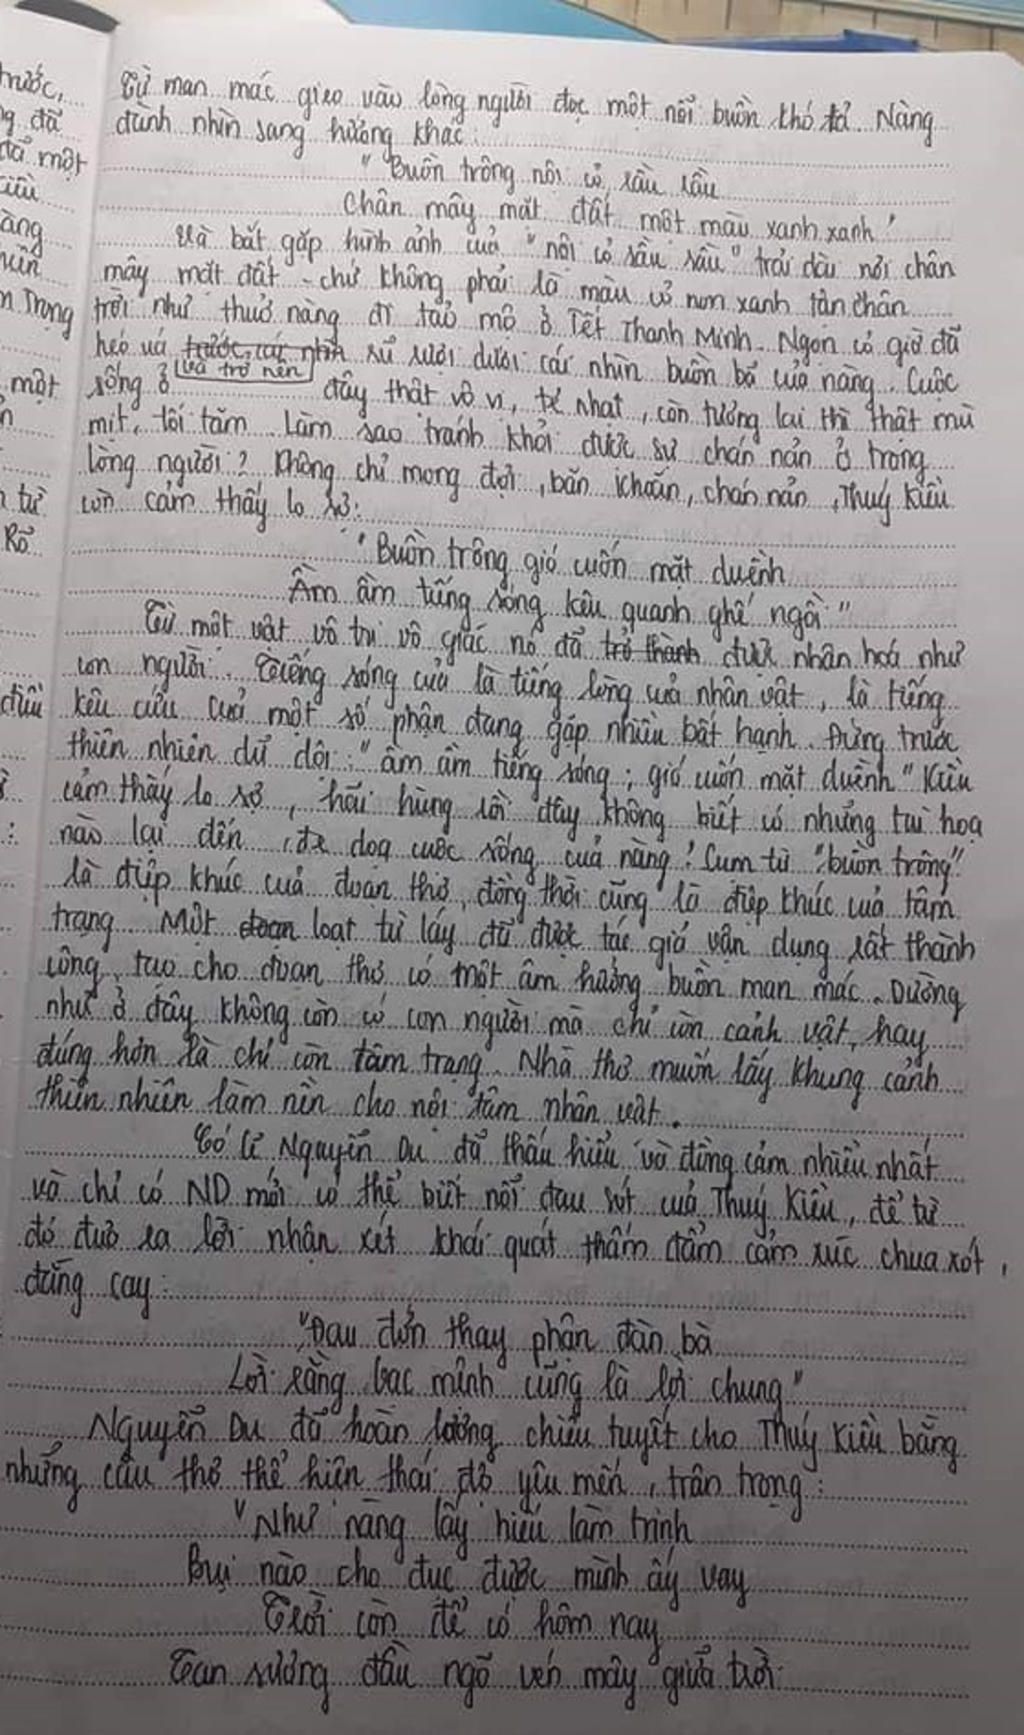 Từ man mác gieo vào lòng người đọc một nỗi buồn khó tả. Nàng
đành nhìn sang hướng khác:
"Buồn trông nội cỏ rầu rầu
Chân mây mặt đất một màu xanh xanh"
Và bắt gặp hình ảnh của "nội cỏ rầu rầu" trải dài nơi chân
mây mặt đất - chứ không phải là màu cỏ non xanh tận chân
trời như thuở nàng đi tảo mộ ở Tết Thanh Minh. Ngọn cỏ giờ đã
héo uá trước cái nhìn và trở nên rũ rượi dưới cái nhìn buồn bã của nàng. Cuộc
sống ở đây thật vô vị, tẻ nhạt, còn tương lai thì thật mù
mịt, tối tăm. Làm sao tránh khỏi được sự chán nản ở trong
lòng người? Không chỉ mong đợi, băn khoăn, chán nản, Thuý Kiều
còn cảm thấy lo sợ:
"Buồn trông gió cuốn mặt duềnh
Ầm ầm tiếng sóng kêu quanh ghế ngồi"
Từ một vật vô tri vô giác nó đã trở thành được nhân hoá như
con người. Tiếng sóng của là tiếng lòng của nhân vật, là tiếng
kêu cứu của một số phận đang gặp nhiều bất hạnh. Đứng trước
thiên nhiên dữ dội: "ầm ầm tiếng sóng; gió cuốn mặt duềnh" Kiều
cảm thấy lo sợ, hãi hùng rồi đây không biết có những tai hoạ
nào lại đến, đe doạ cuộc sống của nàng! Cụm từ "buồn trông"
là điệp khúc của đoạn thơ, đồng thời cũng là điệp khúc của tâm
trạng. Một đoạn loạt từ láy đã được tác giả vận dụng rất thành
công, tạo cho đoạn thơ có một âm hưởng buồn man mác. Dường
như ở đây không còn có con người mà chỉ còn cảnh vật, hay
đúng hơn là chỉ còn tâm trạng. Nhà thơ muốn lấy khung cảnh
thiên nhiên làm nền cho nội tâm nhân vật.
Có lẽ Nguyễn Du đã thấu hiểu và đồng cảm nhiều nhất
và chỉ có ND mới có thể biết nỗi đau sót của Thuý Kiều, để từ
đó đưa ra lời nhận xét khái quát thấm đẫm cảm xúc chua xót,
đắng cay:
"Đau đớn thay phận đàn bà
Lời rằng bạc mệnh cũng là lời chung"
Nguyễn Du đã hoàn lương chiêu tuyết cho Thuý Kiều bằng
những câu thơ thể hiện thái độ yêu mến, trân trọng:
"Như nàng lấy hiếu làm trinh
Bụi nào cho đục được mình ấy vay
Trời còn để có hôm nay
Tan sương đầu ngõ vén mây giữa trời